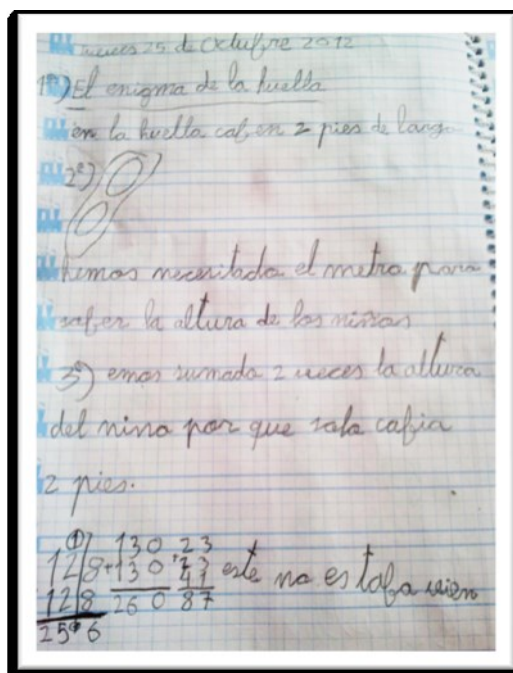 jueves 25 de Octubre 2012
1º) El enigma de la huella
en la huella caben 2 pies de largo
2º)
hemos necesitado el metro para
saber la altura de los niños
3º) emos sumado 2 veces la altura
del nino por que solo cabia
2 pies.
1
128 + 130 + 23
128 130 23
256 260 87 este no estaba vien